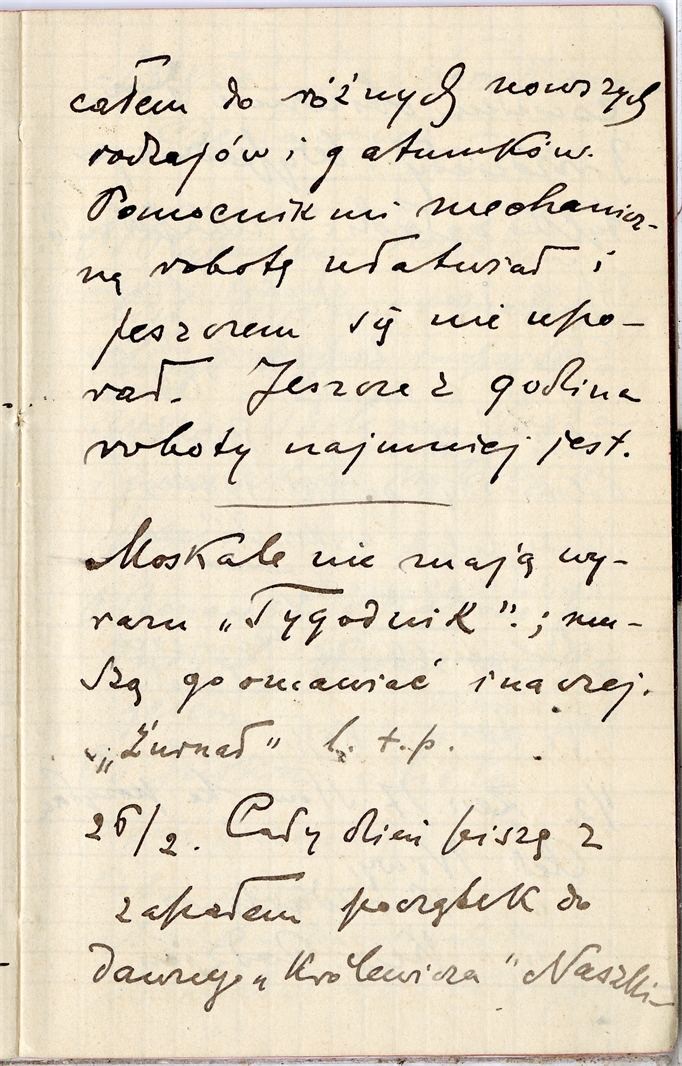 całem do różnych nowszych
rodzajów i gatunków.
Pomocnik mi mechanicz-
ną robotę ułatwiał i
jeszczem się nie upo-
rał. Jeszcze 2 godzina
roboty najmniej jest.
Moskale nie mają wy-
razu „Tygodnik”.; mu-
szą go omawiać inaczej.
„Żurnał” i. t. p.
26/2. Cały dzień piszę z
zapałem początek do
dawnego „Królewicza” Naszki-